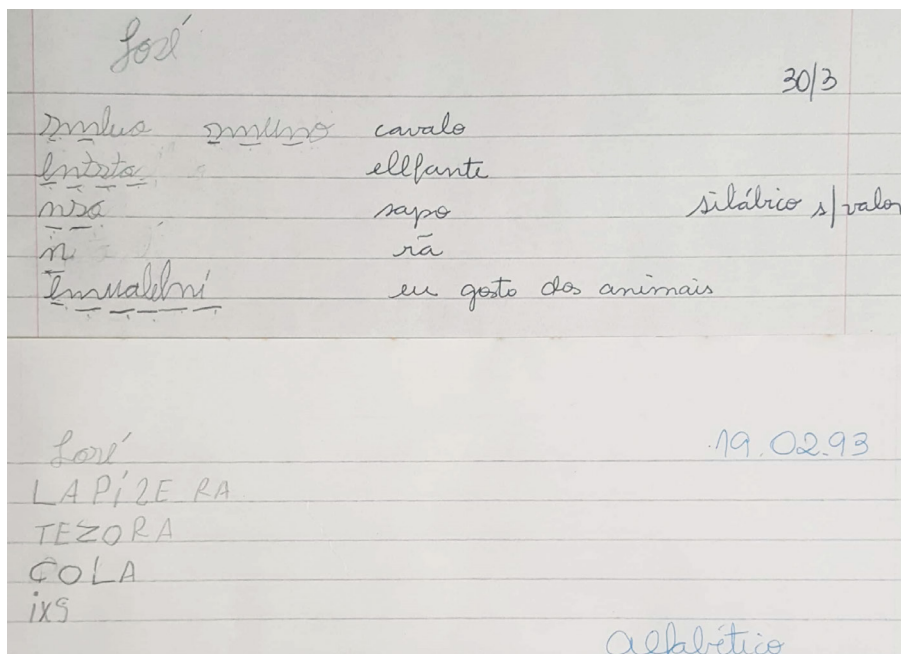 José
30/3
cavalo
elefante
nsa sapo silábico s/valor
n rã
Emualelni eu gosto dos animais
José 19.02.93
LAPÍZE RA
TEZORA
COLA
ixs
alfabético